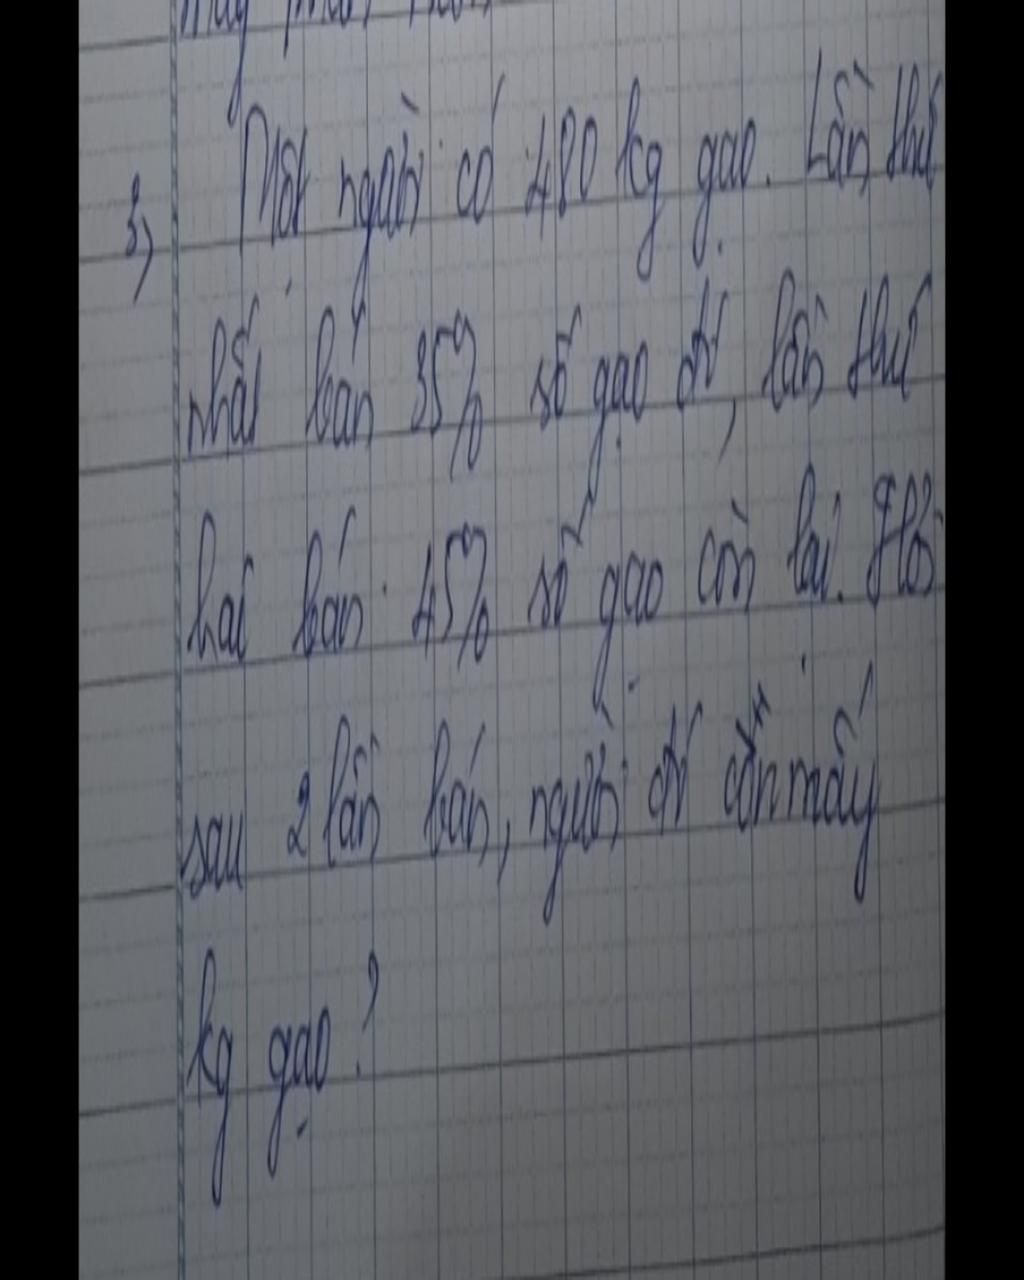 3, Một người có 480 kg gạo. Lần thứ
nhất bán 35% số gạo đó, lần thứ
hai bán 45% số gạo còn lại. Hỏi
sau 2 lần bán, người đó còn mấy
kg gạo?